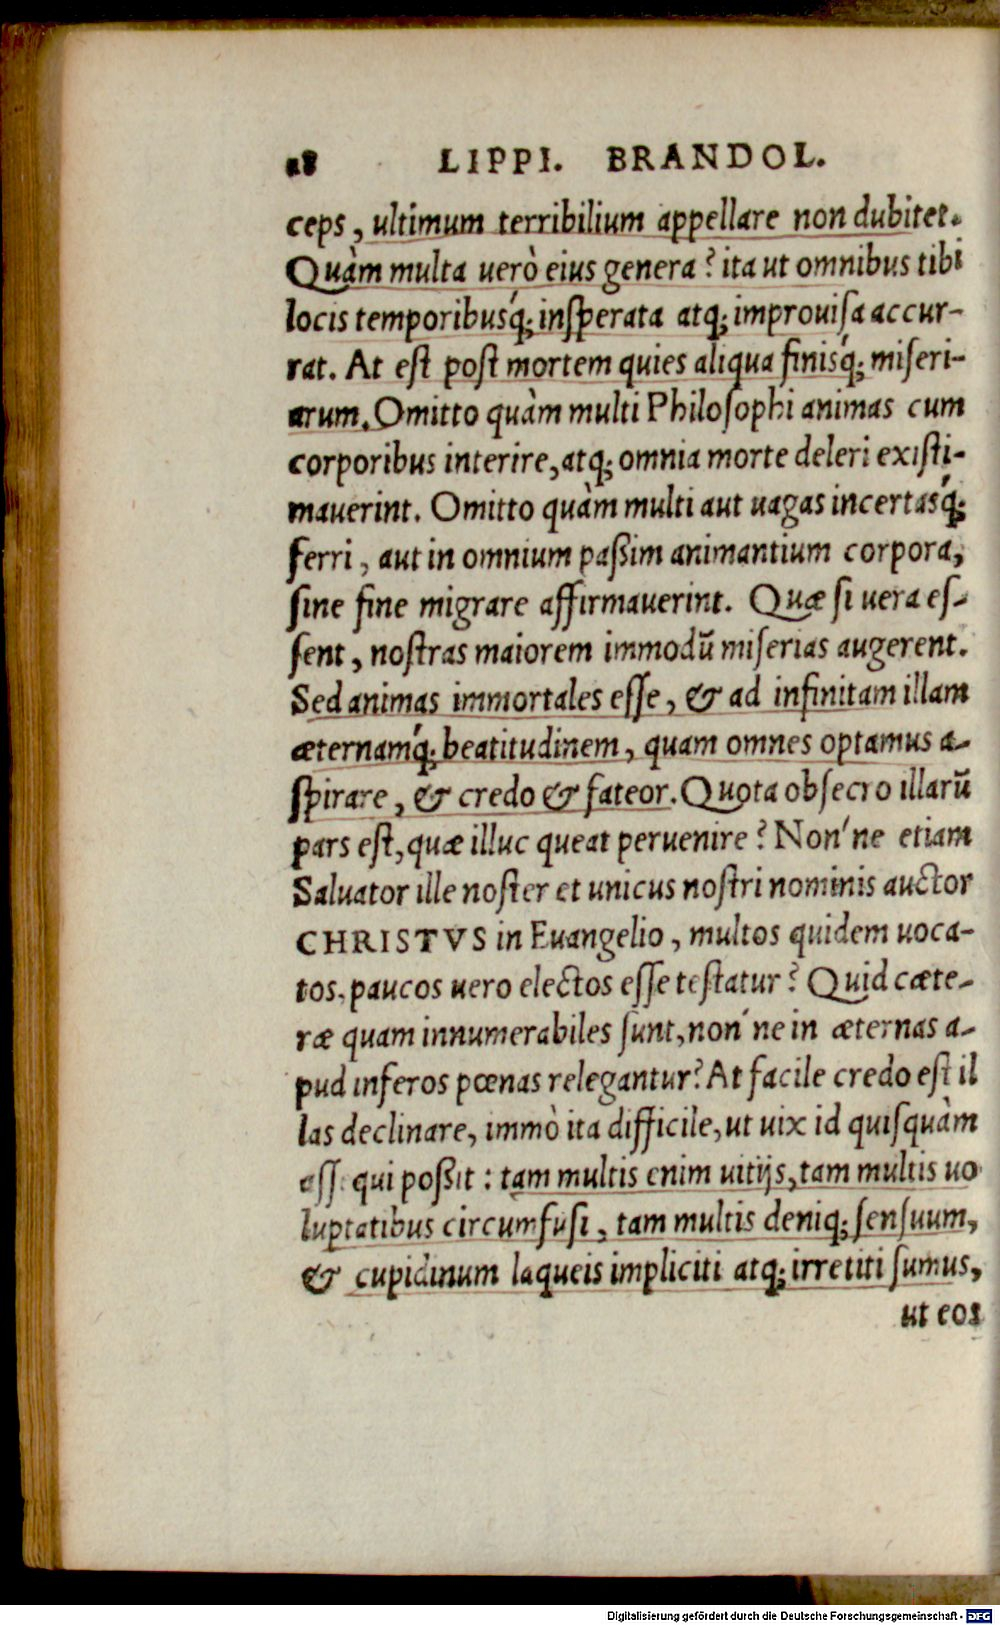 28 LIPPI. BRANDOL.
ceps, ultimum terribilium appellare non dubitet.
Quàm multa uerò eius genera? ita ut omnibus tibi
locis temporibusq́; insperata atq; improuisa accur-
rat. At est post mortem quies aliqua finisq́; miseri-
arum. Omitto quàm multi Philosophi animas cum
corporibus interire, atq; omnia morte deleri existi-
mauerint. Omitto quàm multi aut uagas incertasq́;
ferri, aut in omnium paßim animantium corpora,
sine fine migrare affirmauerint. Quæ si uera es-
sent, nostras maiorem immodũ miserias augerent.
Sed animas immortales esse, & ad infinitam illam
æternamq́; beatitudinem, quam omnes optamus a-
spirare, & credo & fateor. Quota obsecro illarũ
pars est, quæ illuc queat peruenire? Non'ne etiam
Saluator ille noster et unicus nostri nominis auctor
CHRISTVS in Euangelio, multos quidem uoca-
tos, paucos uero electos esse testatur? Quid cæte-
ræ quam innumerabiles sunt, non'ne in æternas a-
pud inferos pœnas relegantur? At facile credo est il
las declinare, immò ita difficile, ut uix id quisquàm
esse qui poßit: tam multis enim uitijs, tam multis uo
luptatibus circumfusi, tam multis deniq; sensuum,
& cupidinum laqueis impliciti atq; irretiti sumus,
ut eos
Digitalisierung gefördert durch die Deutsche Forschungsgemeinschaft - DFG